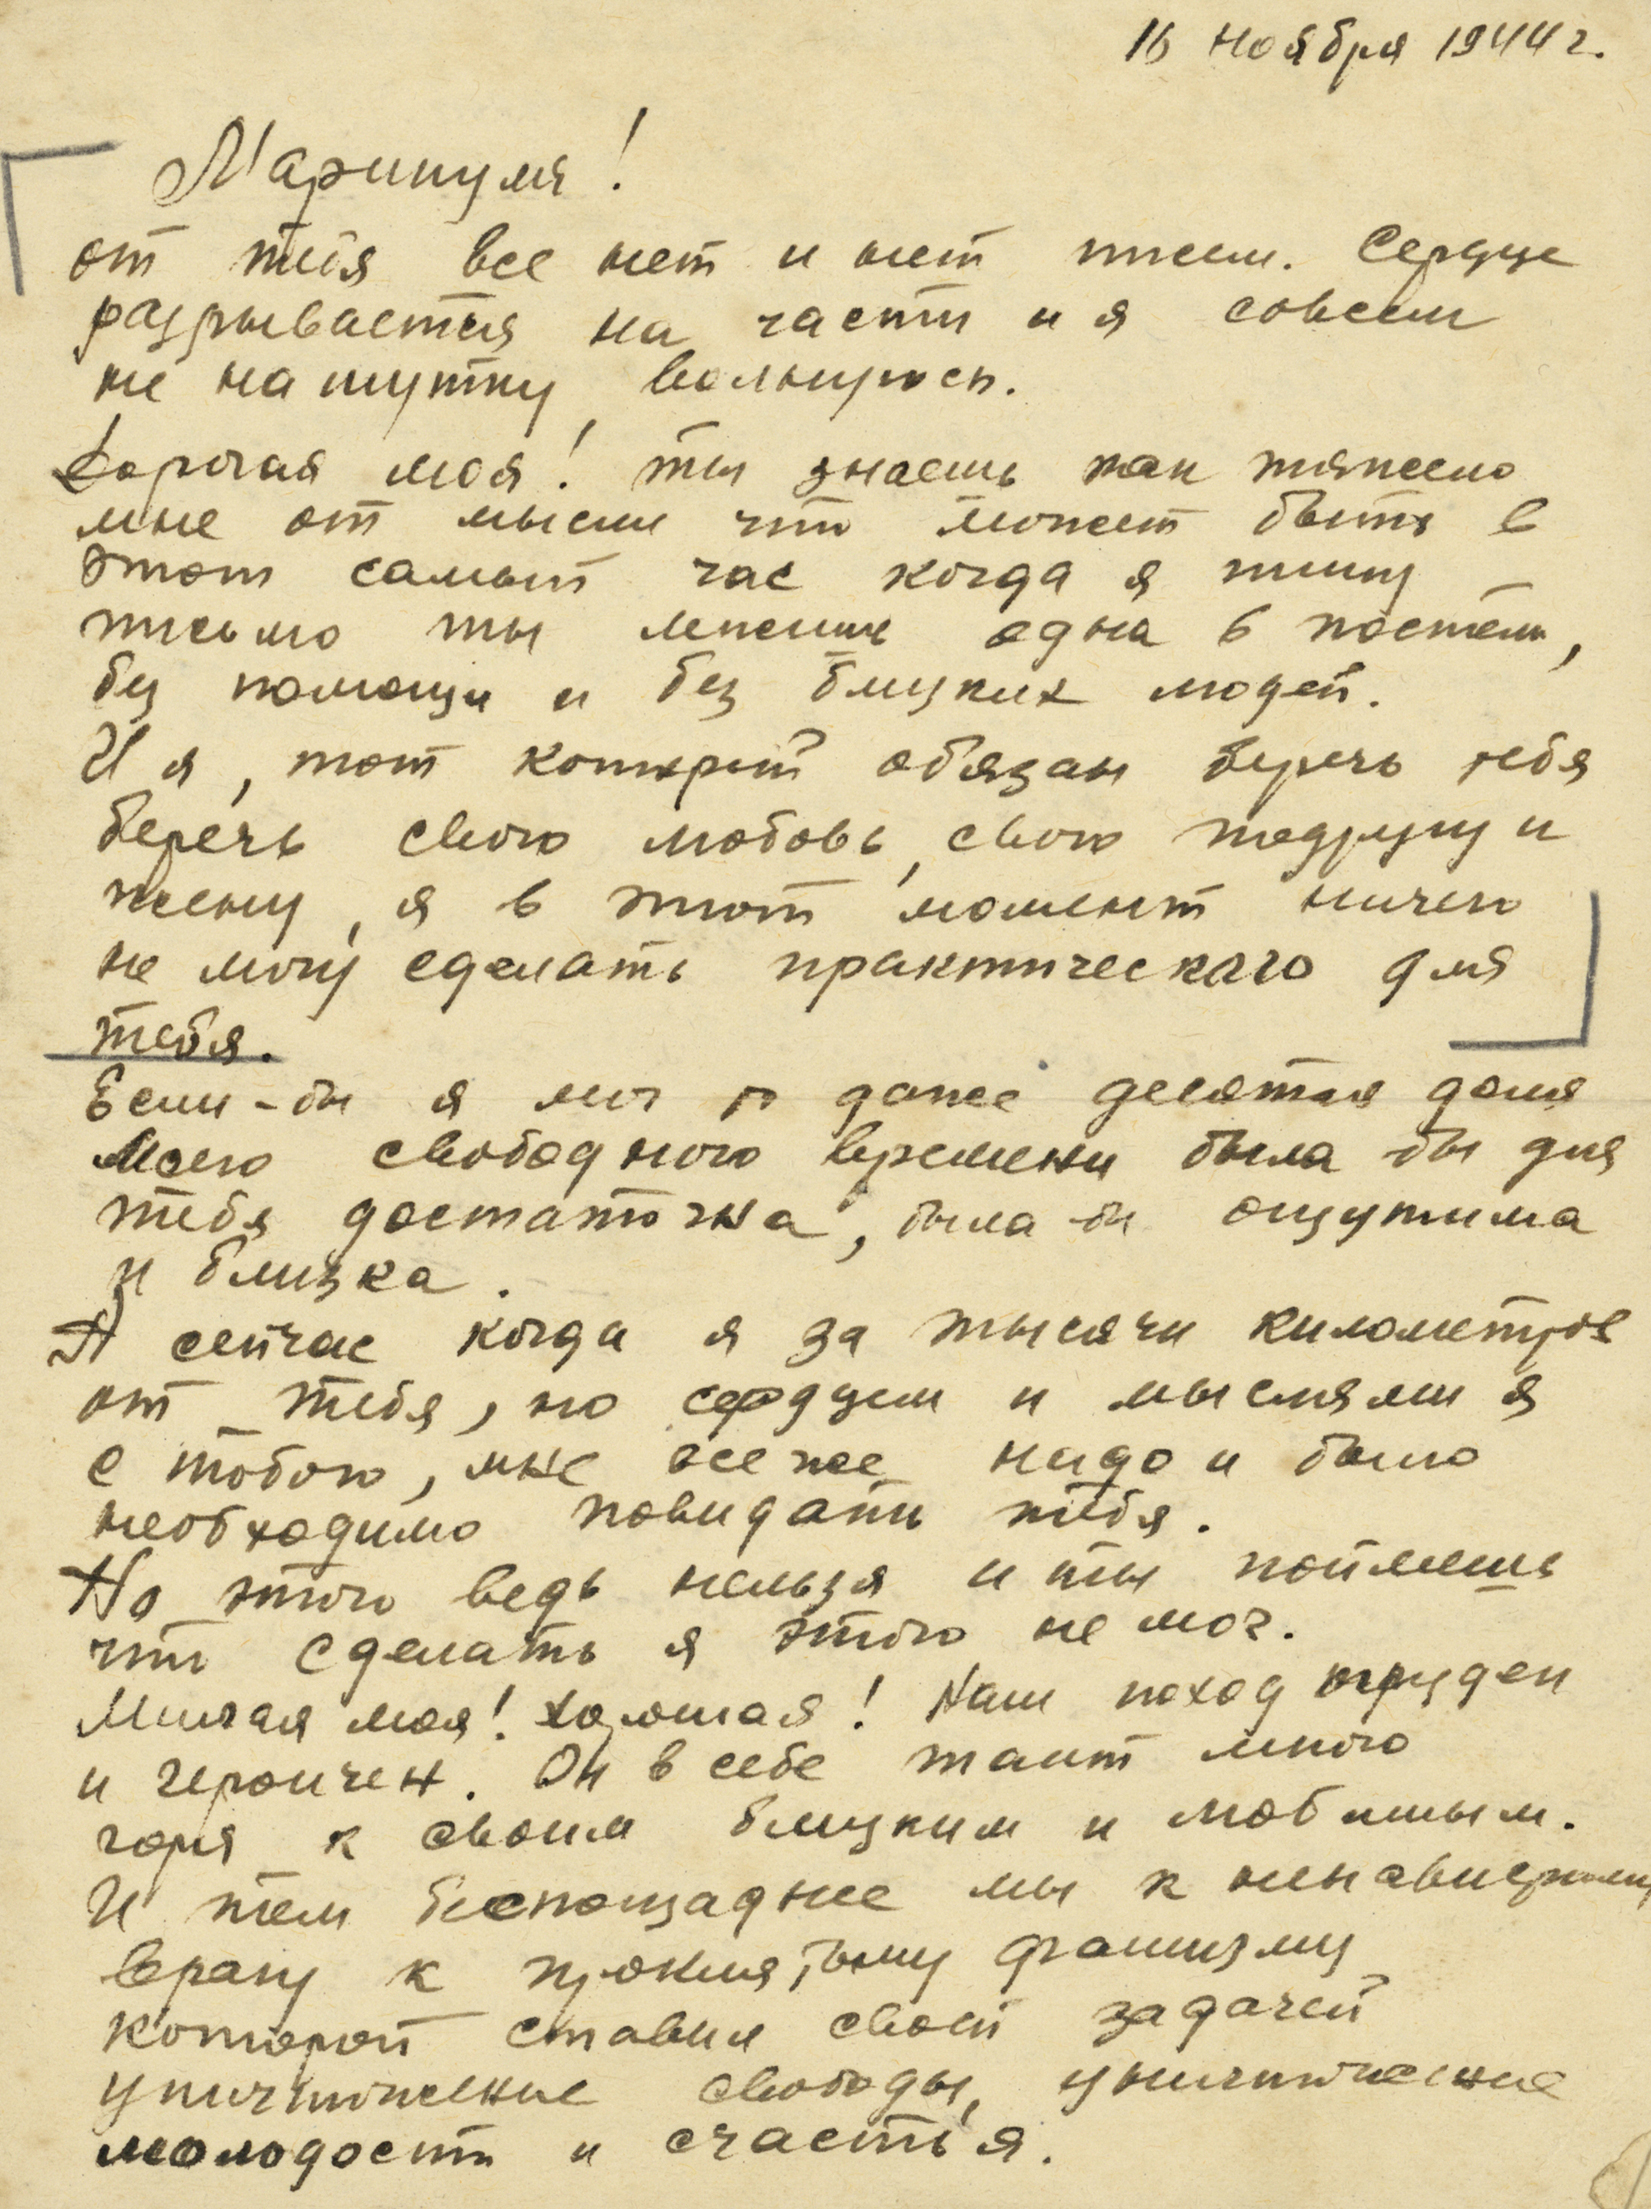 16 ноября 1944 г.
Маринуля!
от тебя все нет и нет писем. Сердце
разрывается на части и я совсем
не на шутку волнуюсь.
Дорогая моя! ты знаешь как тяжело
мне от мысли что может быть в
этот самый час когда я пишу
письмо ты лежишь одна в постели,
без помощи и без близких людей.
И я, тот который обязан беречь тебя
беречь свою любовь, свою подругу и
жену, я в этот момент ничего
не могу сделать практического для
тебя.
Если-бы я мог даже десятая доля
моего свободного времени была бы для
тебя достаточна, была-бы ощутима
и близка.
А сейчас когда я за тысячи километров
от тебя, но сердцем и мыслями я
с тобою, мне все же надо и было
необходимо повидать тебя.
Но этого ведь нельзя и ты поймешь
что сделать я этого не мог.
Милая моя! Хорошая! Наш поход труден
и героичен. Он в себе таит много
горя к своим близким и любимым.
И тем беспощаднее мы к ненавистному
врагу к проклятому фашизму
который ставил своей задачей
уничтожение свободы, уничтожение
молодости и счастья.